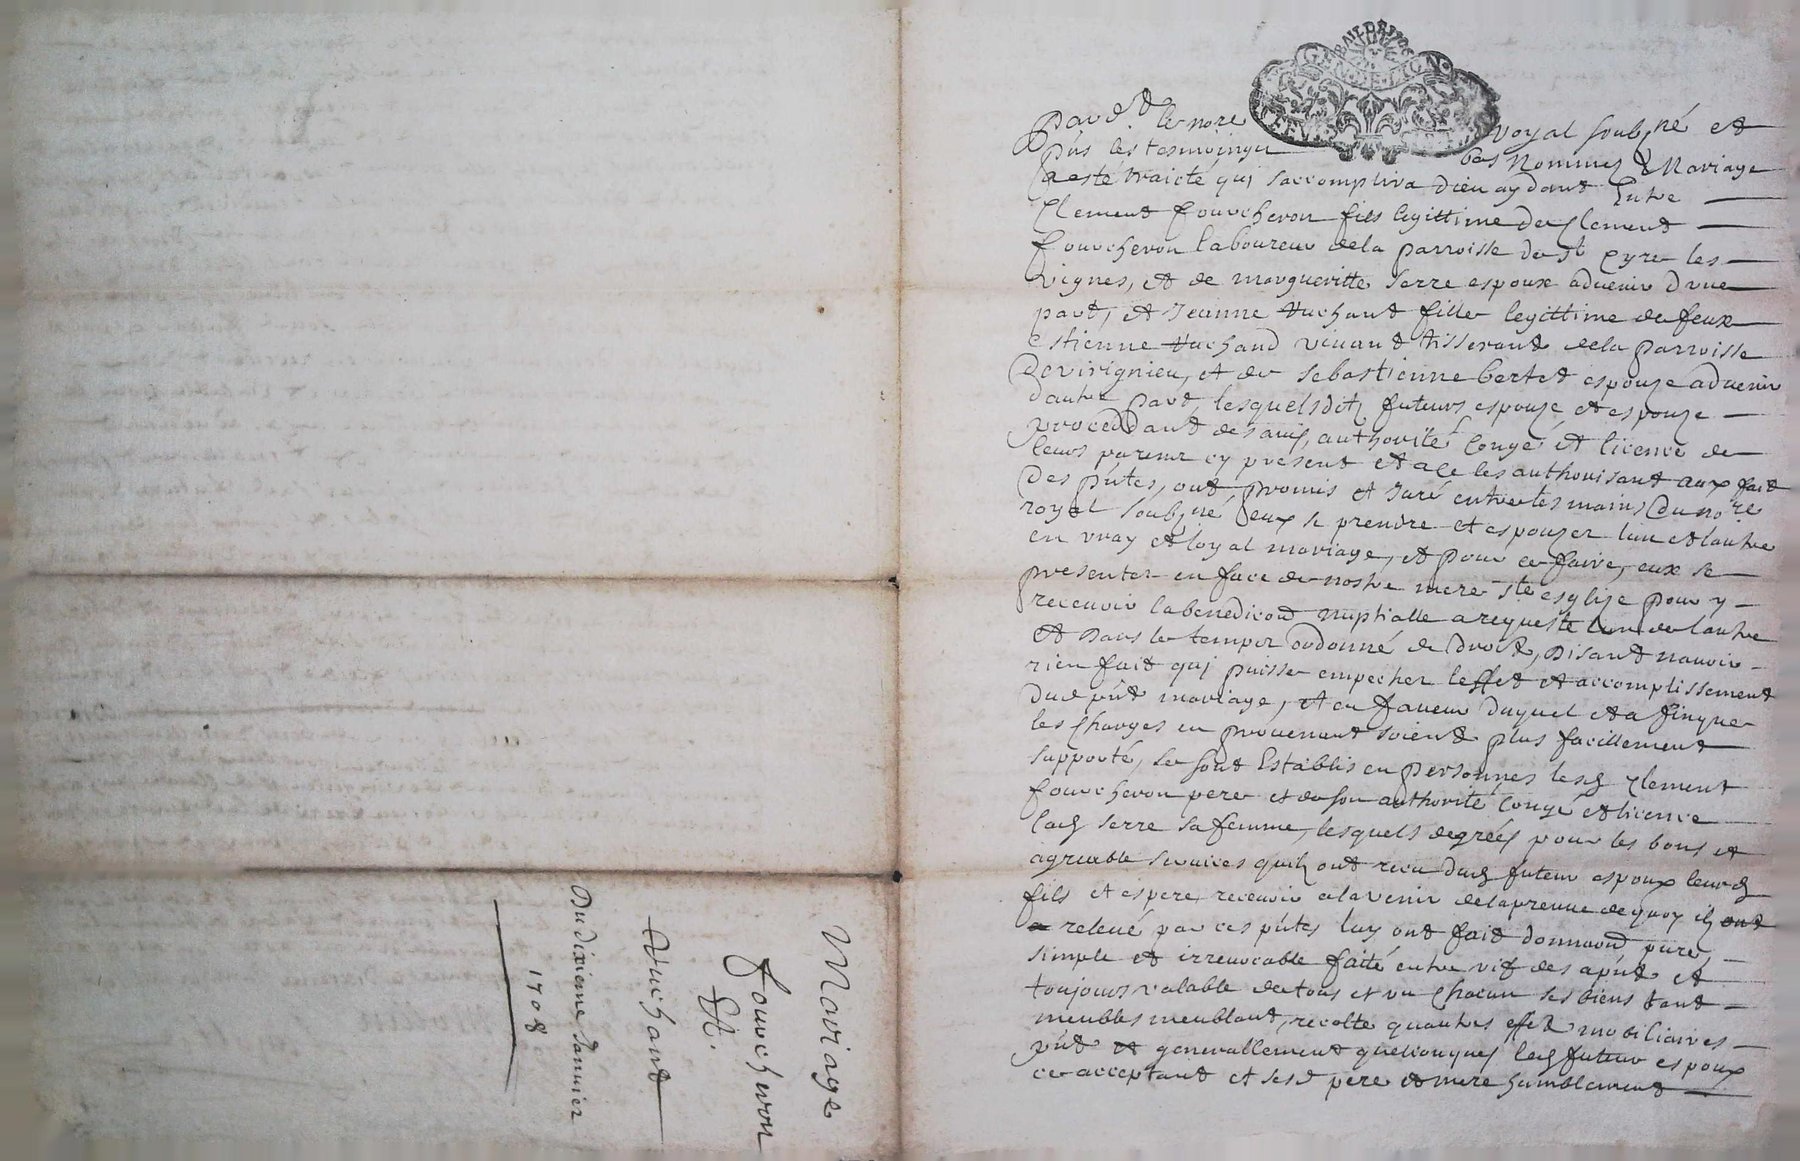 Mariage
fourcheron
Et
Vuchant
Du dixieme Janvier
1708
GEN. DE LION
Pard.t le no.re royal soubzné et
pns les tesmoingtz bas Nommez Mariage
a esté traicté quj saccomplira dieu aydant Entre
Clement fourcheron fils legittime de Clement
fourcheron laboureur de la parroisse de st Cyre les
vignes, et de margueritte Serre espoux aduenir dvne
part, et Jeanne Vuchant fille legittime de feux
Estienne Vuchand viuant tisserant de la parroisse
De virignieu, et de Sebastienne bertet espouze aduenir
dautre part, lesquels ditz futeurs espouze et espouze
procedDant de sauis, authorité Congé et licence de
leurs parentz cy present et a ce les authorisant aux fait
Des pntes, ont promis et Juré entre les mains Du no.re
royal soubzné eux se prendre et espouzer lun et lautre
en vray et loyal mariage, et pour ce faire, eux se
presenter en face de nostre mere S.te esglize pour y
receuoir la benediCon nuptialle a requeste lun de lautre
et Dans le temps ordonné de Droit, Disant nauoir
rien fait quj puisse empecher leffet et accomplissement
Dud pnt mariage, et en faueur duquel et a finque
les Charges en prouenant soient plus facillement
supporté, se sont Establis en personnes lesd Clement
fourcheron pere et de son authorité Congé et licence
lad Serre sa femme, lesquels degréez pour les bons et
agreable seruices quilz ont receu dud futeur espoux leurd
fils et espere receuoir alavenir de la preuue de quoy ilz ont
relevé par ces pntes luy ont fait donnaon pure,
simple et irreuocable faite entre vif des apnt et
toujours valable de tous et vn Chacun ses biens tant
meubles meublant, recolte quautres effet mobiliaires
pnt et generallement quelconques led futeur espoux
ce acceptant et sesd pere et mere humblement